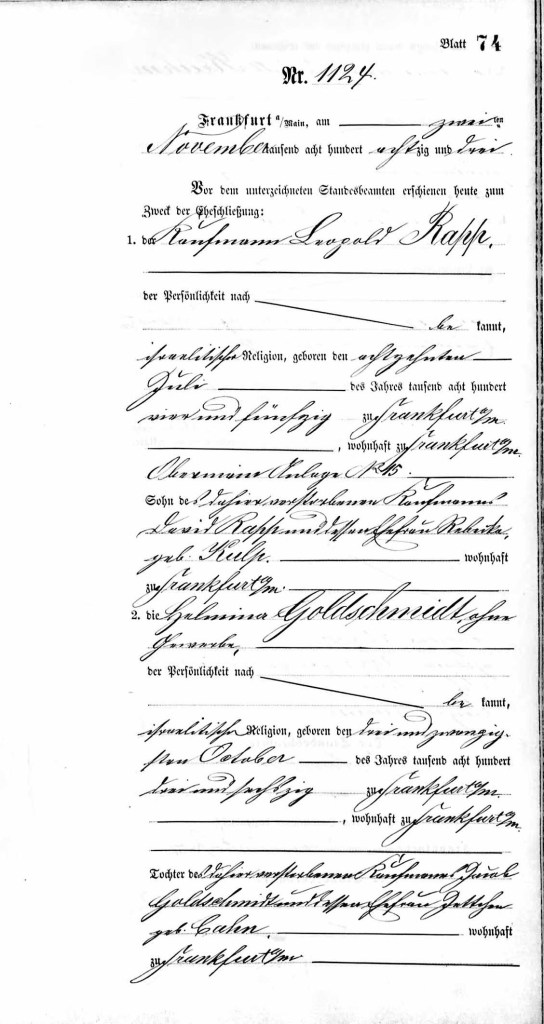 Blatt 74
Nr. 1124.
Frankfurt a/Main, am zwei ten
November tausend acht hundert achtzig und drei
Vor dem unterzeichneten Standesbeamten erschienen heute zum
Zweck der Eheschließung:
1. der Kaufmann Leopold Rapp,
der Persönlichkeit nach
be kannt,
israelitischer Religion, geboren den achtzehnten
Juli des Jahres tausend acht hundert
vier und fünfzig zu Frankfurt a/m.
, wohnhaft zu Frankfurt a/m.
Obermain Anlage No 15.
Sohn des dahier verstorbenen Kaufmannes
David Rapp und dessen Ehefrau Rebecka,
geb. Kulp. wohnhaft
zu Frankfurt a/m.
2. die Helmina Goldschmidt, ohne
Gewerbe,
der Persönlichkeit nach
be kannt,
israelitischer Religion, geboren den drei und zwanzig-
sten October des Jahres tausend acht hundert
drei und sechszig zu Frankfurt a/m.
, wohnhaft zu Frankfurt a/m.
Tochter des dahier verstorbenen Kaufmannes Jacob
Goldschmidt und dessen Ehefrau Jettchen
geb. Cahn. wohnhaft
zu Frankfurt a/m